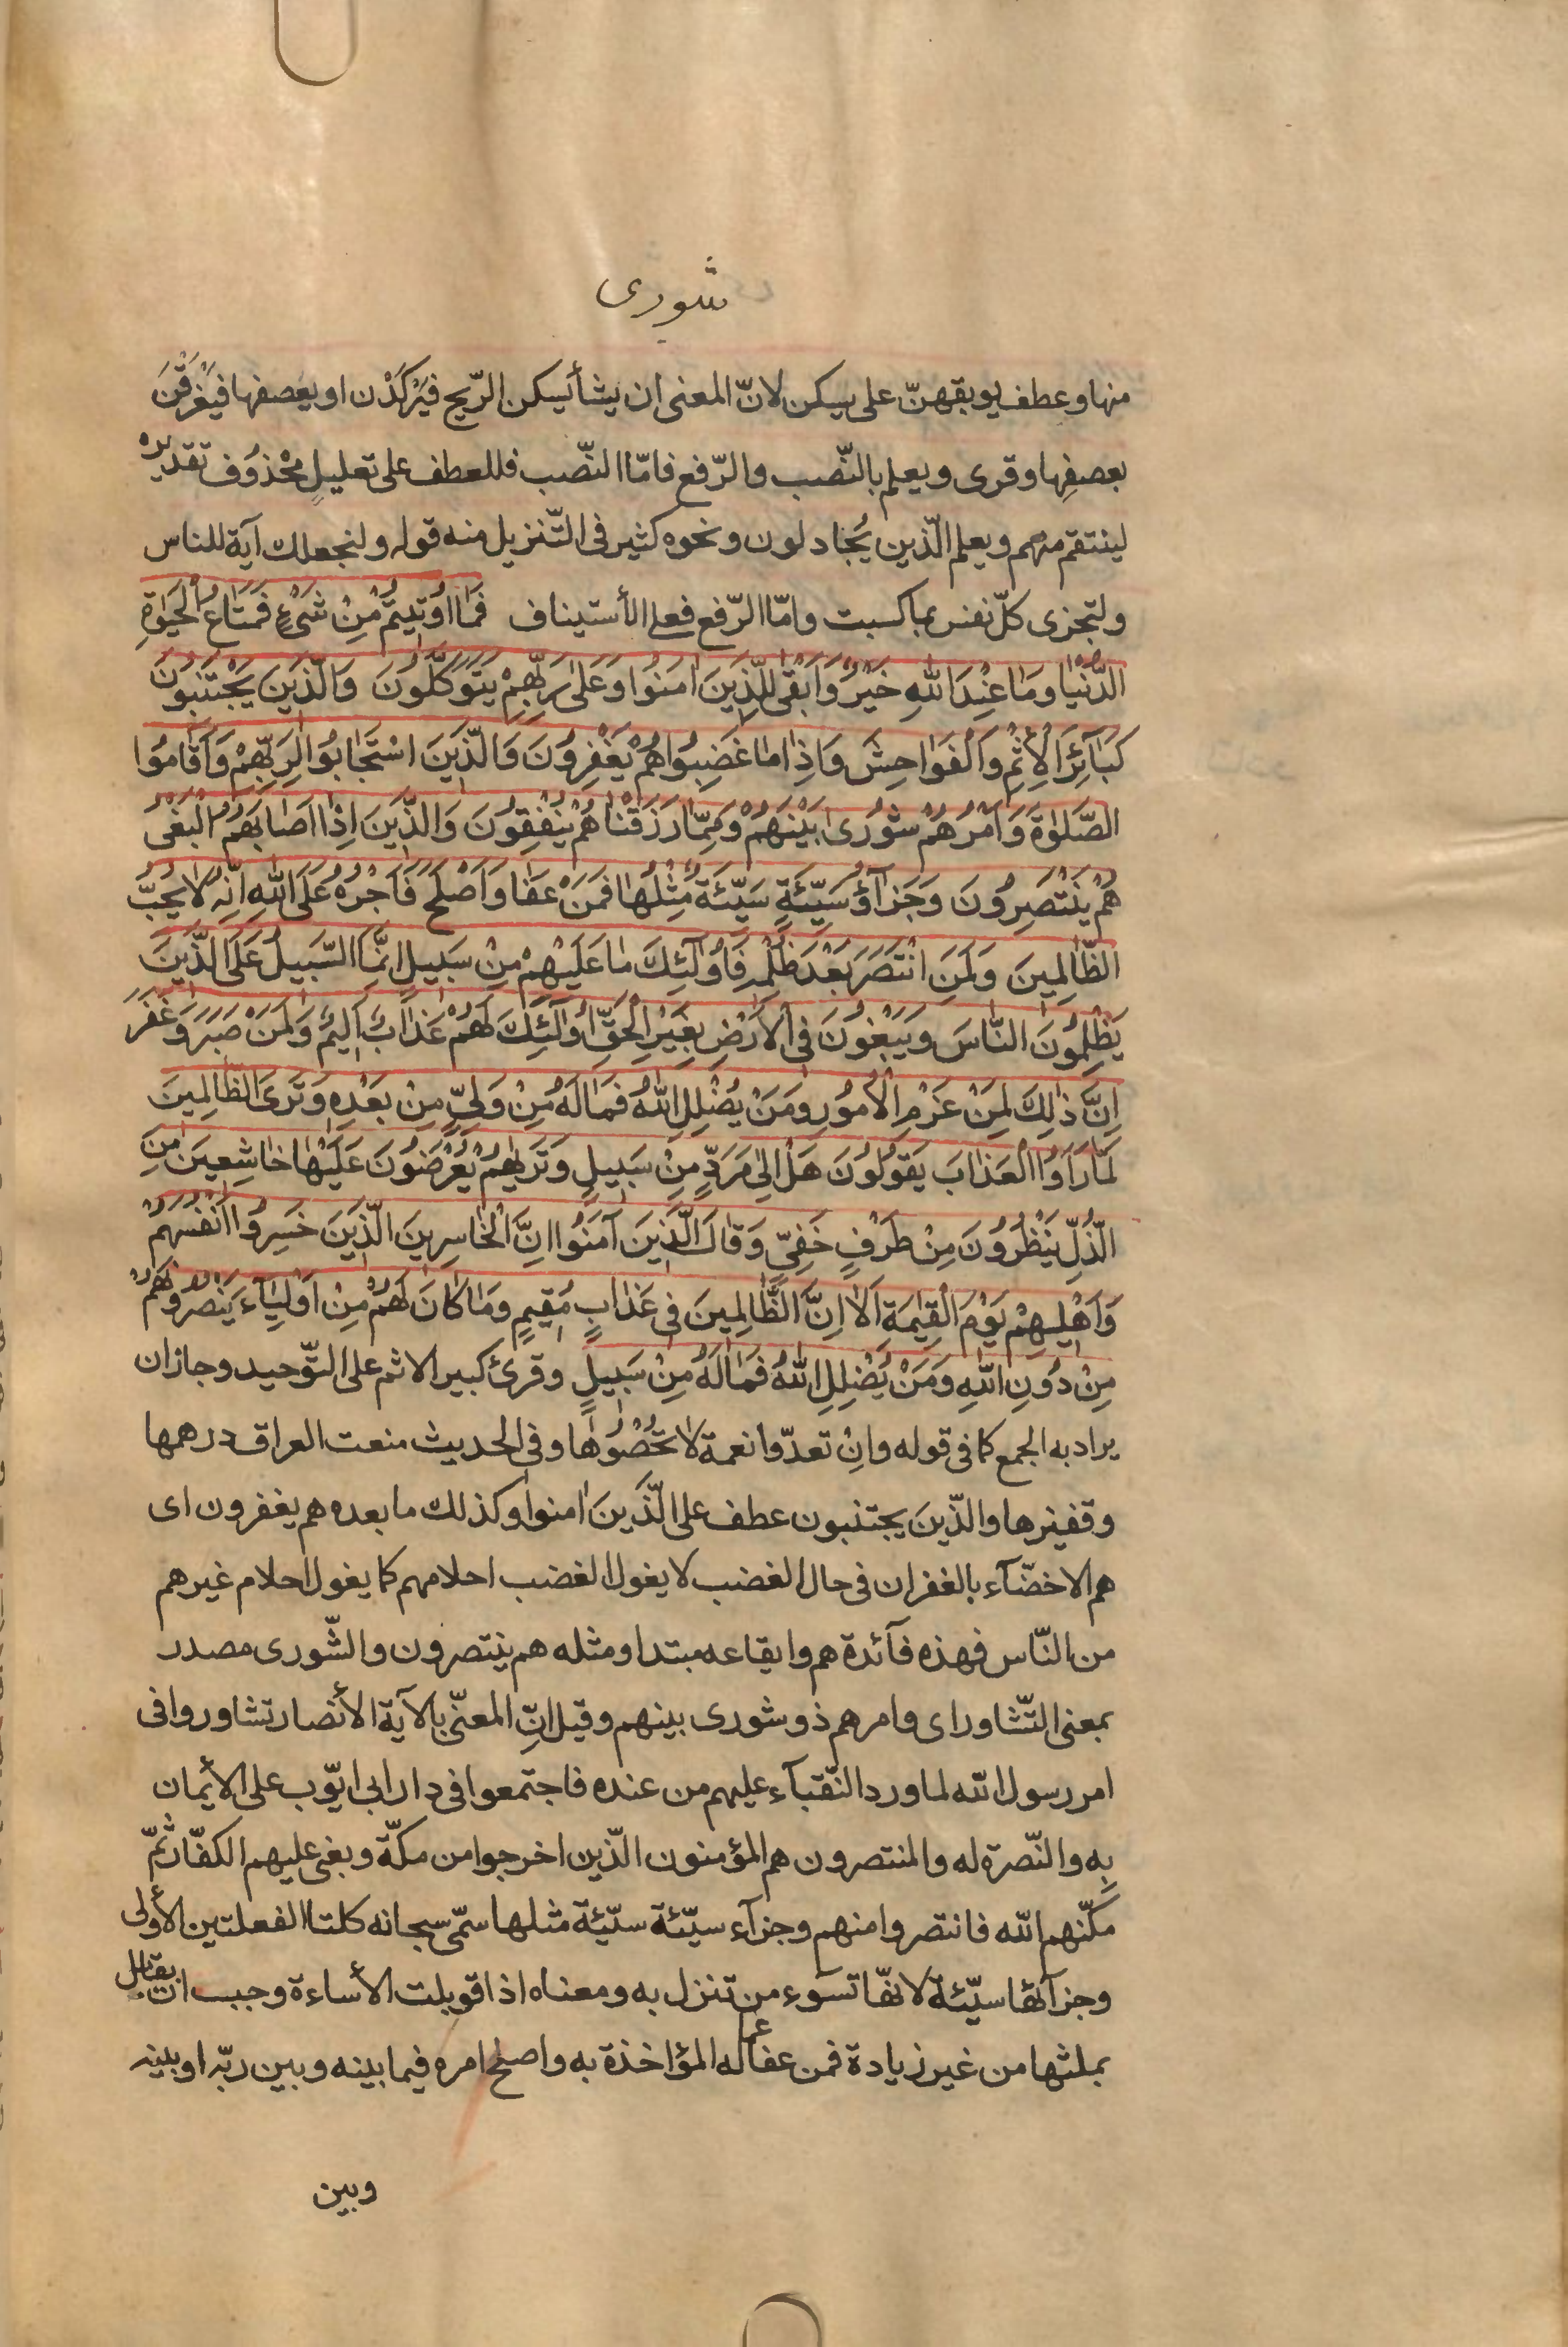 شورى
منها وعطف يوبقهنّ على يسكن لانّ المعنى ان يشأ يسكن الرّيح فيَرْكَدْن او يعَصفها فَيَغْرَقْنَ
بعصفِها وقرى ويعلم بالنّصب والرّفع فامّا النّصب فللعطف على تعليلٍ مَحْذوُف تقديره
لينتقم منهم ويعلم الّذين يُجٰادلون ونحوه كثير فى التّنزيل منه قوله ولنجعلك آية للناس
ولتجزى كلّ نفس بما كسبت وامّا الرّفع فعلى الأستيناف فَمٰا اُوتيتُمْ مِنْ شَىْءٍ فَمَتٰاعُ الْحَيٰوةِ
الدُّنْيٰا ومٰا عِنْدَ اللهِ خَيْرٌ وَاَبْقىٰ لِلَّذِينَ اٰمَنُوا وَعَلىٰ رَبِّهِمْ يَتَوَكَّلُونَ وَالَّذِينَ يَجْتَنِبُونَ
كَبٰآئِرَ الْاِثْمِ وَالْفَوٰاحِشَ وَاِذٰا مٰا غَضِبُوا هُمْ يَغْفِرُونَ وَالَّذِينَ اسْتَجٰابُوا لِرَبِّهِمْ وَاَقٰامُوا
الصَّلوٰةَ وَاَمْرُهُمْ شوُرىٰ بَيْنَهُمْ وَمِمّٰا رَزَقْنٰاهُمْ يُنْفِقُونَ وَالَّذِينَ اِذٰا اَصٰابَهُمُ الْبَغْىُ
هُمْ يَنْتَصِرُونَ وَجَزٰآؤُ سَيِّئَةٍ سَيِّئَةٌ مِثْلُهٰا فَمَنْ عَفٰا وَاَصْلَحَ فَاَجْرُهُ عَلَى اللهِ اِنَّهُ لٰا يُحِبُّ
الظّٰالِمِينَ وَلَمَنِ انْتَصَرَ بَعْدَ ظُلْمِهِ فَاُولٰٓئِكَ مٰا عَلَيْهِمْ مِنْ سَبِيلٍ اِنَّمَا السَّبِيلُ عَلَى الَّذِينَ
يَظْلِمُونَ النّٰاسَ وَيَبْغُونَ فِى الْاَرْضِ بِغَيْرِ الْحَقِّ اُولٰٓئِكَ لَهُمْ عَذٰابٌ اَلِيمٌ وَلَمَنْ صَبَرَ وَغَفَرَ
اِنَّ ذٰلِكَ لَمِنْ عَزْمِ الْاُمُورِ وَمَنْ يُضْلِلِ اللهُ فَمٰا لَهُ مِنْ وَلِىٍّ مِنْ بَعْدِهِ وَتَرَى الظّٰالِمِينَ
لَمّٰا رَاَوُا الْعَذٰابَ يَقُولُونَ هَلْ اِلىٰ مَرَدٍّ مِنْ سَبِيلٍ وَتَرٰيهُمْ يُعْرَضُونَ عَلَيْهٰا خٰاشِعِينَ مِنَ
الذُّلِّ يَنْظُرُونَ مِنْ طَرْفٍ خَفِىٍّ وَقٰالَ الَّذِينَ آمَنُوا اِنَّ الْخٰاسِرِينَ الَّذِينَ خَسِرُوا اَنْفُسَهُمْ
وَاَهْلِيهِمْ يَوْمَ الْقِيٰمَةِ اَلٰا اِنَّ الظّٰالِمِينَ فِى عَذٰابٍ مُقِيمٍ وَمٰا كٰانَ لَهُمْ مِنْ اَوْلِيٰآءَ يَنْصُرُونَهُمْ
مِنْ دُونِ اللهِ وَمَنْ يُضْلِلِ اللهُ فَمٰا لَهُ مِنْ سَبِيلٍ وقرئ كبير الاثم على التّوحيد وجاز ان
يراد به الجمع كما فى قوله وانْ تعدّوا نعمة لٰا تُحْصُوهٰا وفى الحديث منعت العراق درهمها
وقفيزها والّذين يجتنبون عطف على الّذَينَ اٰمنوا وكذلك ما بعده هم يغفرون اى
هم الاخصّآء بالغفران فى حال الغضب لا يغول الغضب احلامهم كما يغول احلام غيرهم
من النّاس فهذه فآئدة هم وايقاعه مبتدا ومثله هم ينتصرون والشّورى مصدر
بمعنى التّشاور اى وامرهم ذو شورى بينهم وقيل انّ المعنّى بالآية الأنصار تشاوروا فى
امر رسول الله لما ورد النّقبآء عليهم من عنده فاجتمعوا فى دار ابى ايّوب على الأيمان
بِه والنّصرة له والمنتصرون هم المؤمنون الّذين اخرجوا من مكّة وبغى عليهم الكفّار ثمّ
مكّنهم الله فانتصروا منهم وجزآء سيّئة سيّئة مثلها سمّى سبحانه كلتا الفعلتين الأولى
وجزآئها سيّئة لانهّا تسوء من تنزل به ومعناه اذا قوبلت الأساءة وجب ان يقابل
بمثلها من غير زيادة فمن عفا عما له المؤاخذة به واصلح امره فيما بينه وبين ربّه او بينه
وبين